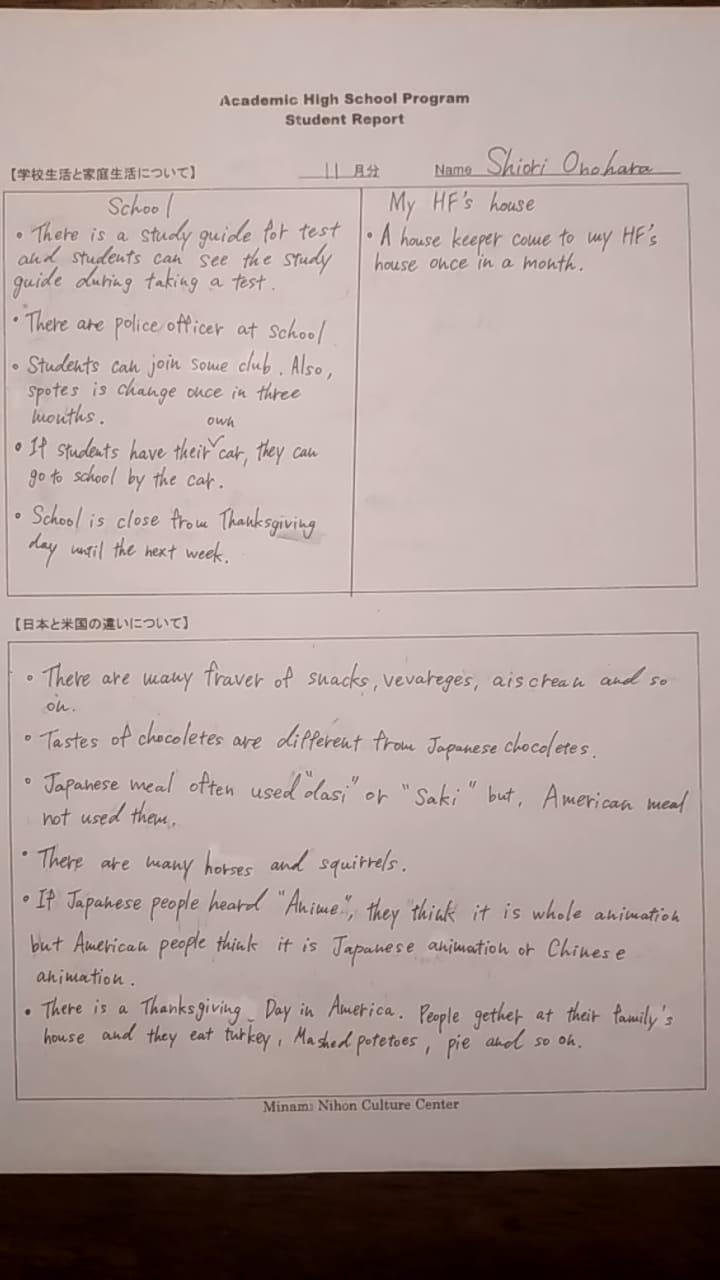 Academic High School Program
Student Report
【学校生活と家庭生活について】 11 月分 Name Shiori Onohara
School
• There is a study guide for test
and students can see the study
guide during taking a test.
• There are police officer at school
• Students can join some club. Also,
spotes is change once in three
mouths.
• If students have their own car, they can
go to school by the car.
• School is close from Thanksgiving
day until the next week.
My HF's house
• A house keeper come to my HF's
house once in a month.
【日本と米国の違いについて】
• There are many fraver of snacks, vevareges, aiscrean and so
on.
• Tastes of chocoletes are different from Japanese chocoletes.
• Japanese meal often used "dasi" or "Saki" but, American meal
not used them.
• There are many horses and squirrels.
• If Japanese people heard "Anime", they think it is whole animation
but American people think it is Japanese animation or Chinese
animation.
• There is a Thanksgiving Day in America. People gether at their family's
house and they eat turkey, Mashed potetoes, pie and so on.
Minami Nihon Culture Center